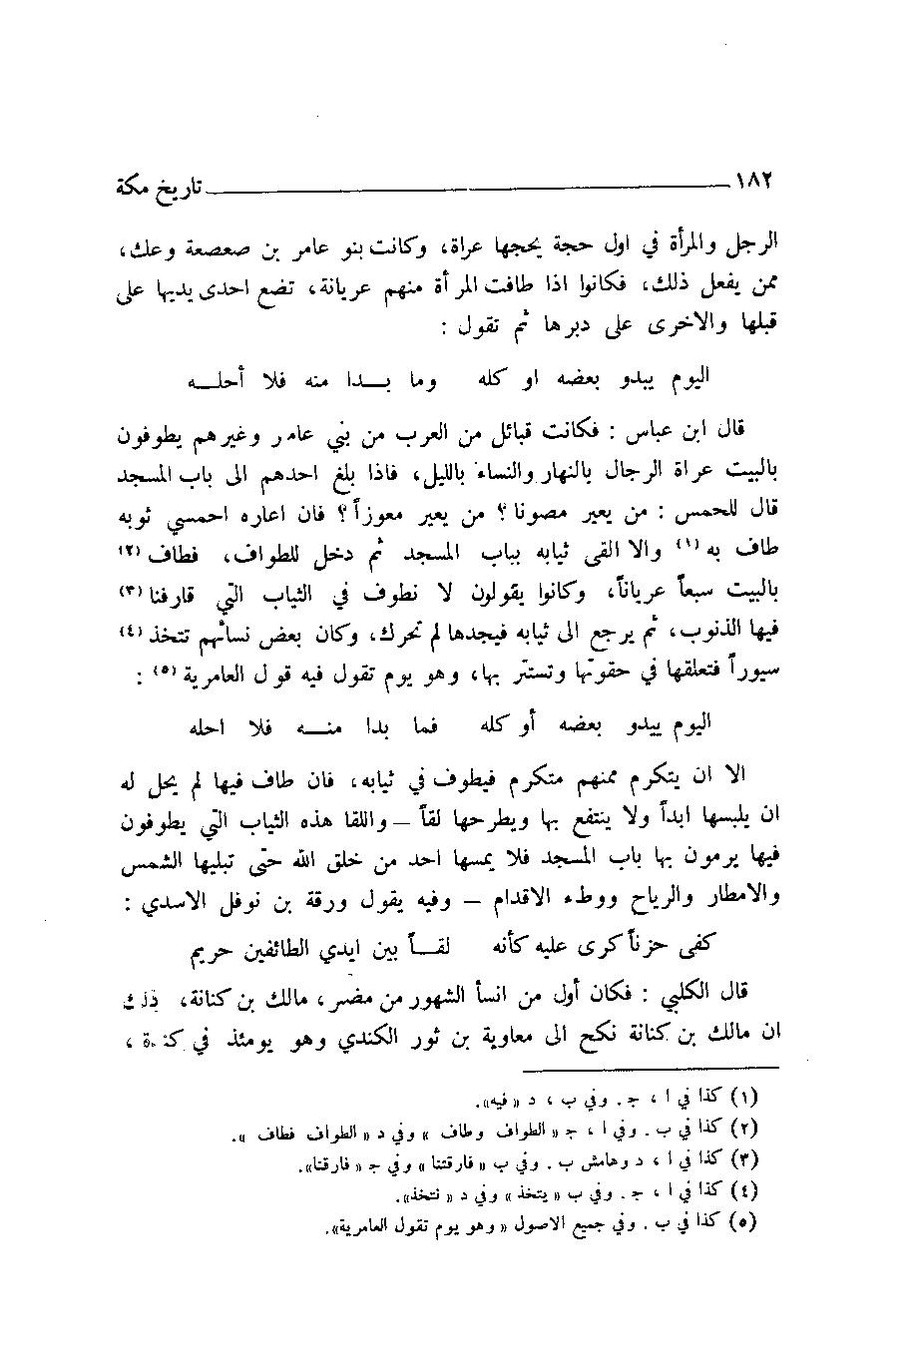 ١٨٢ تاريخ مكة
الرجل والمرأة في اول حجة يحجها عراة، وكانت بنو عامر بن صعصعة وعك،
ممن يفعل ذلك، فكانوا اذا طافت المرأة منهم عريانة، تضع احدى يديها على
قبلها والاخرى على دبرها ثم تقول :
اليوم يبدو بعضه او كله وما بــدا منه فلا أحلــه
قال ابن عباس : فكانت قبائل من العرب من بني عامر وغيرهم يطوفون
بالبيت عراة الرجال بالنهار والنساء بالليل، فاذا بلغ احدهم الى باب المسجد
قال للحمس : من يعير مصونا؟ من يعير معوزاً؟ فان اعاره احمسي ثوبه
طاف به (١) والا القى ثيابه بباب المسجد ثم دخل للطواف، فطاف (٢)
بالبيت سبعاً عرياناً، وكانوا يقولون لا نطوف في الثياب التي قارفنا (٣)
فيها الذنوب، ثم يرجع الى ثيابه فيجدها لم تحرك، وكان بعض نسائهم تتخذ (٤)
سيوراً فتعلقها في حقوتها وتستتر بها، وهو يوم تقول فيه قول العامرية (٥) :
اليوم يبدو بعضه أو كله فما بدا منــه فلا احله
الا ان يتكرم منهم متكرم فيطوف في ثيابه، فان طاف فيها لم يحل له
ان يلبسها ابداً ولا ينتفع بها ويطرحها لقاً ــ واللقا هذه الثياب التي يطوفون
فيها يرمون بها باب المسجد فلا يمسها احد من خلق الله حتى تبليها الشمس
والامطار والرياح ووطء الاقدام ــ وفيه يقول ورقة بن نوفل الاسدي :
كفى حزناً كرى عليه كأنه لقــاً بين ايدي الطائفين حريم
قال الكلبي : فكان أول من انسأ الشهور من مضر، مالك بن كنانة، ذلك
ان مالك بن كنانة نكح الى معاوية بن ثور الكندي وهو يومئذ في كندة ،
(١) كذا في ا ، ج . وفي ب ، د « فيه».
(٢) كذا في ب . وفي ا ، ج « الطواف وطاف » وفي د « الطواف فطاف ».
(٣) كذا في ا ، د وهامش ب . وفي ب « فارقتنا » وفي ج « فارقنا».
(٤) كذا في ا ، ج . وفي ب « يتخذ » وفي د « نتخذ».
(٥) كذا في ب . وفي جميع الاصول « وهو يوم تقول العامرية».